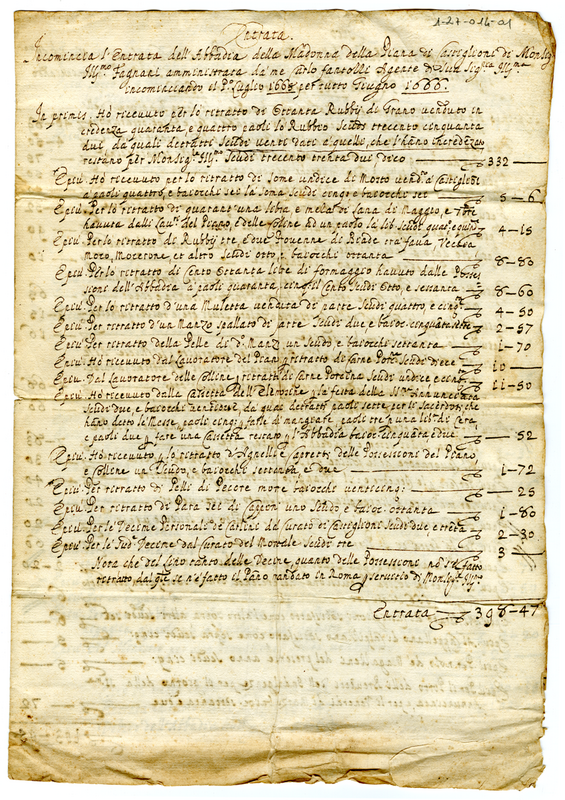 1-27-016-01
Entrata
Incomincia l'Entrata dell'Abbadia della Madonna della Piana di Castiglioni di Monsig.
Ill.mo Fagnani amministrata da me Carlo Agente di Sua Sig.ria Ill.ma
incominciando il P.o Luglio 1665 per tutto Giugno 1666.
In primis. Hò ricevuto per lo ritratto di Ottanta Rubbij di Grano venduto in
credenza quaranta, e quattro paoli lo Rubbio Scudi trecento cinquanta
dui, da quali detratti Scudi venti dati a quello, che l'hanno
restano per Monsig.r Ill.mo Scudi trecento trenta dui dico 332
Epiu. Hò ricevuto per lo ritratto di Some undice di Mosto vend.o a Castiglioni
a paoli quattro, e baiocchi sei la Soma Scudi cinq; e baiocchi sei 5-6
Epiu. Per lo ritratto di quarant'una libra e meza di Lana di Maggio, e
havuta dalli Lav.ri del Piano, e delle Colline ad un paolo la lib. Scudi quat. 4-15
Epiu. Per lo ritratto di Rubbij tre, e due Provenne di Biade trà fava, Vecchia
moco, Mocecone, et altro Scudi otto, e baiocchi ottanta 8-80
Epiu. Per lo ritratto di Cento Ottanta libe di formaggio havuto dalle Posses-
sioni dell'Abbadia à paoli quaranta, cinq; il Cento Scudi Otto, e sessanta 8-60
Epiu. Per lo ritratto d'una Muletta venduta di parte Scudi quattro, e cinq.ta 4-50
Epiu. Per ritratto d'un Manzo spallato di parte Scudi due, e baioc. cinquantasette 2-57
Epiu. Per ritratto della Pelle di d.o Manzo un Scudo e baiocchi settanta 1-70
Epiu. Hò ricevuto dal Lavoratore del Piano p ritratto di Carne Porc.a Scudi diece 10
Epiu. Dal Lavoratore delle Colline p ritratti di Carne Porcina Scudi undice e cinq.ta 11-50
Epiu. Hò ricevuto dalla Cassetta dell'Elemosine p la festa della SS.ma Annunciata
Scudi due, e baiocchi da quai detratti paoli sette per li Sacerdoti, che
hanno detto la Messe, paoli cinq; p farli di mangiare, paoli tre p una lib.a di Cera
e paoli due p fare una Cassetta restano p l'Abbadia baioc. Cinquanta due 52
Epiu. Hò ricevuto p lo ritratto d'Agnelli e Capretti delle Possessioni del Piano,
e Colline un Scudo, e baiocchi settanta e due 1-72
Epiu. Per ritratto di Pelli di Pecore morte baiocchi venticinq; 25
Epiu. Per ritratto di Para sei di Capponi uno Scudo, e baioc. ottanta 1-80
Epiu. Per le Decime Personali dal Curato di Castiglioni Scudi due e trenta 2-30
Epiu. Per le Sud.e Decime dal Curato del Montale Scudi tre 3
Nota che del Lino tanto delle Decime, quanto delle Possessioni nō s'è fatto
ritratto, dal che se n'è fatto il Pano mandato in Roma p servitio di Monsig.r Ill.mo
Entrata 398-47